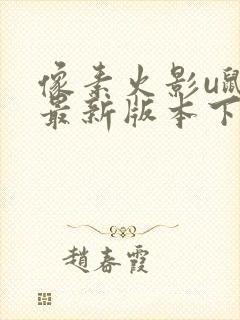 像素火影u鼠
最新版本下
趙春霞